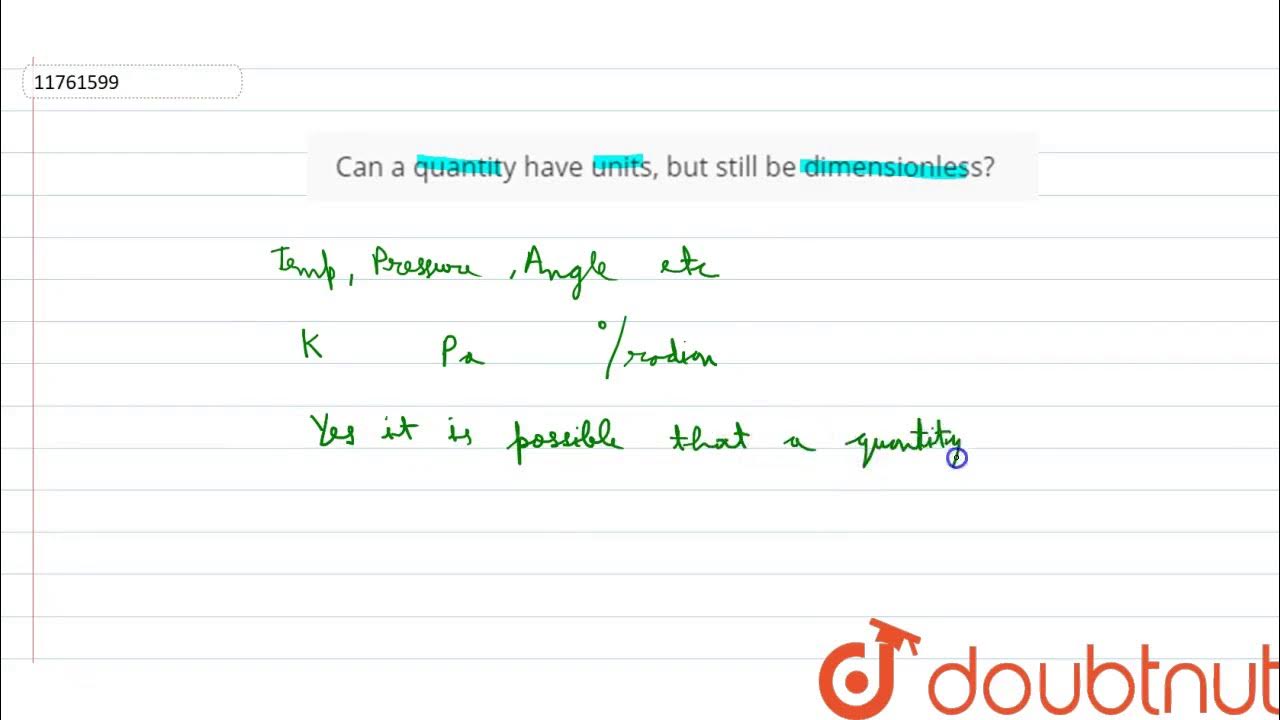 11761599
Can a quantity have units, but still be dimensionless?
Temp, Pressure, Angle etc
K Pa °/radion
Yes it is possible that a quantity
doubtnut